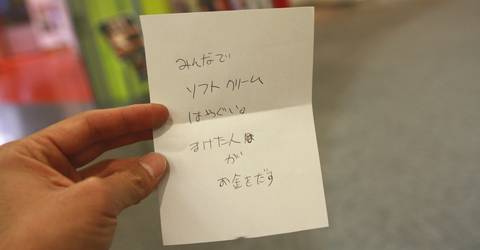 みんなで
ソフトクリーム
はやぐい。
まけた人は
が
お金をだす